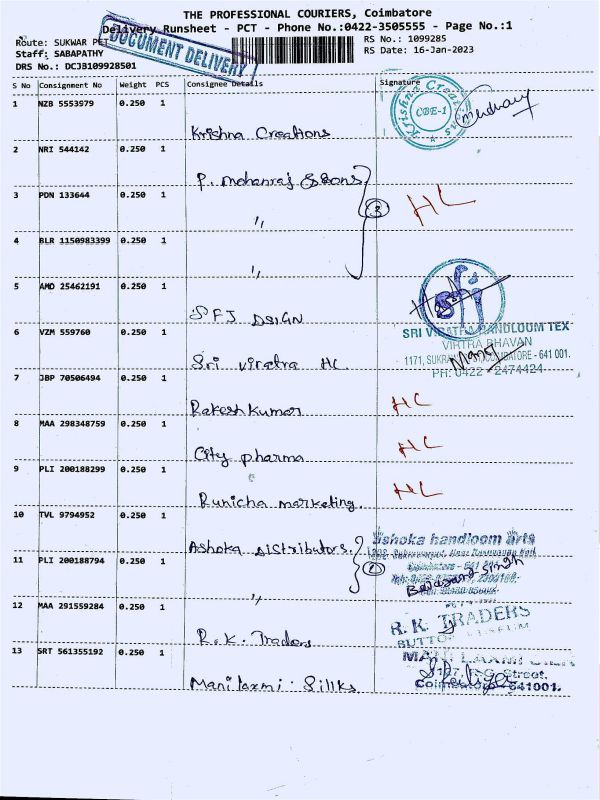 THE PROFESSIONAL COURIERS, Coimbatore
Delivery Runsheet - PCT - Phone No.:0422-3505555 - Page No.:1
DOCUMENT DELIVERY
Route: SUKWAR PET
RS No.: 1099285
Staff: SABAPATHY
RS Date: 16-Jan-2023
DRS No.: DCJB109928501
S No Consignment No Weight PCS Consignee Details Signature
1 NZB 5553979 0.250 1
Krishna Creations
Krishna Creations CBE-1
2 NRI 544142 0.250 1
P. Mohanraj & Sons
3 PDN 133644 0.250 1
" 3 HC
4 BLR 1150983399 0.250 1
"
5 AMD 25462191 0.250 1
SFJ DSIGN
sfj
6 VZM 559760 0.250 1
Sri viratra HC
SRI VIRATRA HANDLOOM TEX
VIRTRA BHAVAN
1171, SUKRA COIMBATORE - 641 001.
PH: 0422 - 2474424
Manoj
7 JBP 70506494 0.250 1
Rakesh Kumar HC
8 MAA 298348759 0.250 1
City pharma HC
9 PLI 200188299 0.250 1
Runicha marketing. HC
10 TVL 9794952 0.250 1
Ashoka Distributors.
ashoka handloom arts
Coimbatore - 641
11 PLI 200188794 0.250 1
"
Singh
12 MAA 291559284 0.250 1
R. K. Traders
R. K. TRADERS
BUTTO
13 SRT 561355192 0.250 1
Mani laxmi Sillks
MANI LAXMI SILK
Street,
Coimbatore - 641001.